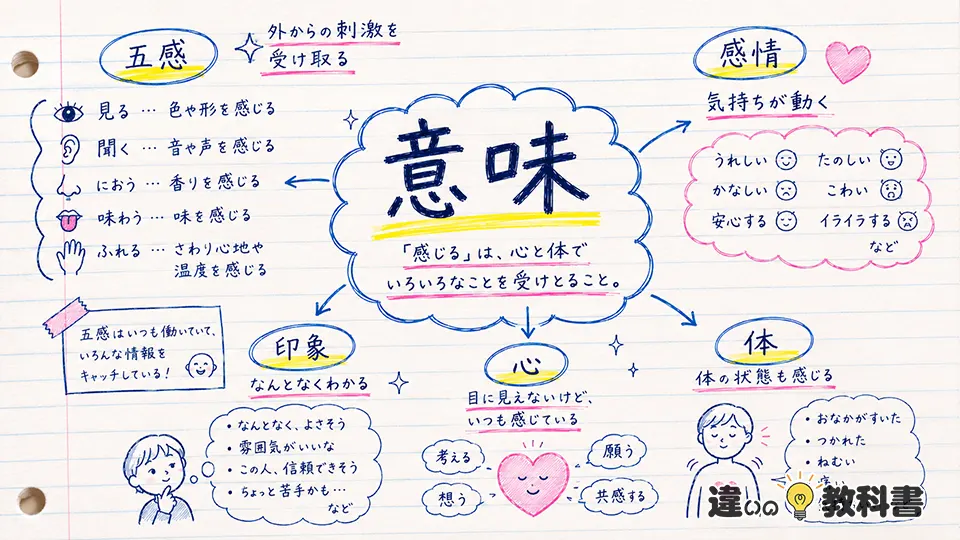 五感
外からの刺激を
受け取る
見る … 色や形を感じる
聞く … 音や声を感じる
におう … 香りを感じる
味わう … 味を感じる
ふれる … さわり心地や
温度を感じる
五感はいつも働いていて、
いろんな情報を
キャッチしている！
意味
「感じる」は、心と体で
いろいろなことを受けとること。
感情
気持ちが動く
うれしい たのしい
かなしい こわい
安心する イライラする
など
印象
なんとなくわかる
・なんとなく、よさそう
・雰囲気がいいな
・この人、信頼できそう
・ちょっと苦手かも…
など
心
目に見えないけど、
いつも感じている
考える
願う
想う
共感する
体
体の状態も感じる
・おなかがすいた
・つかれた
・ねむい
違いの教科書